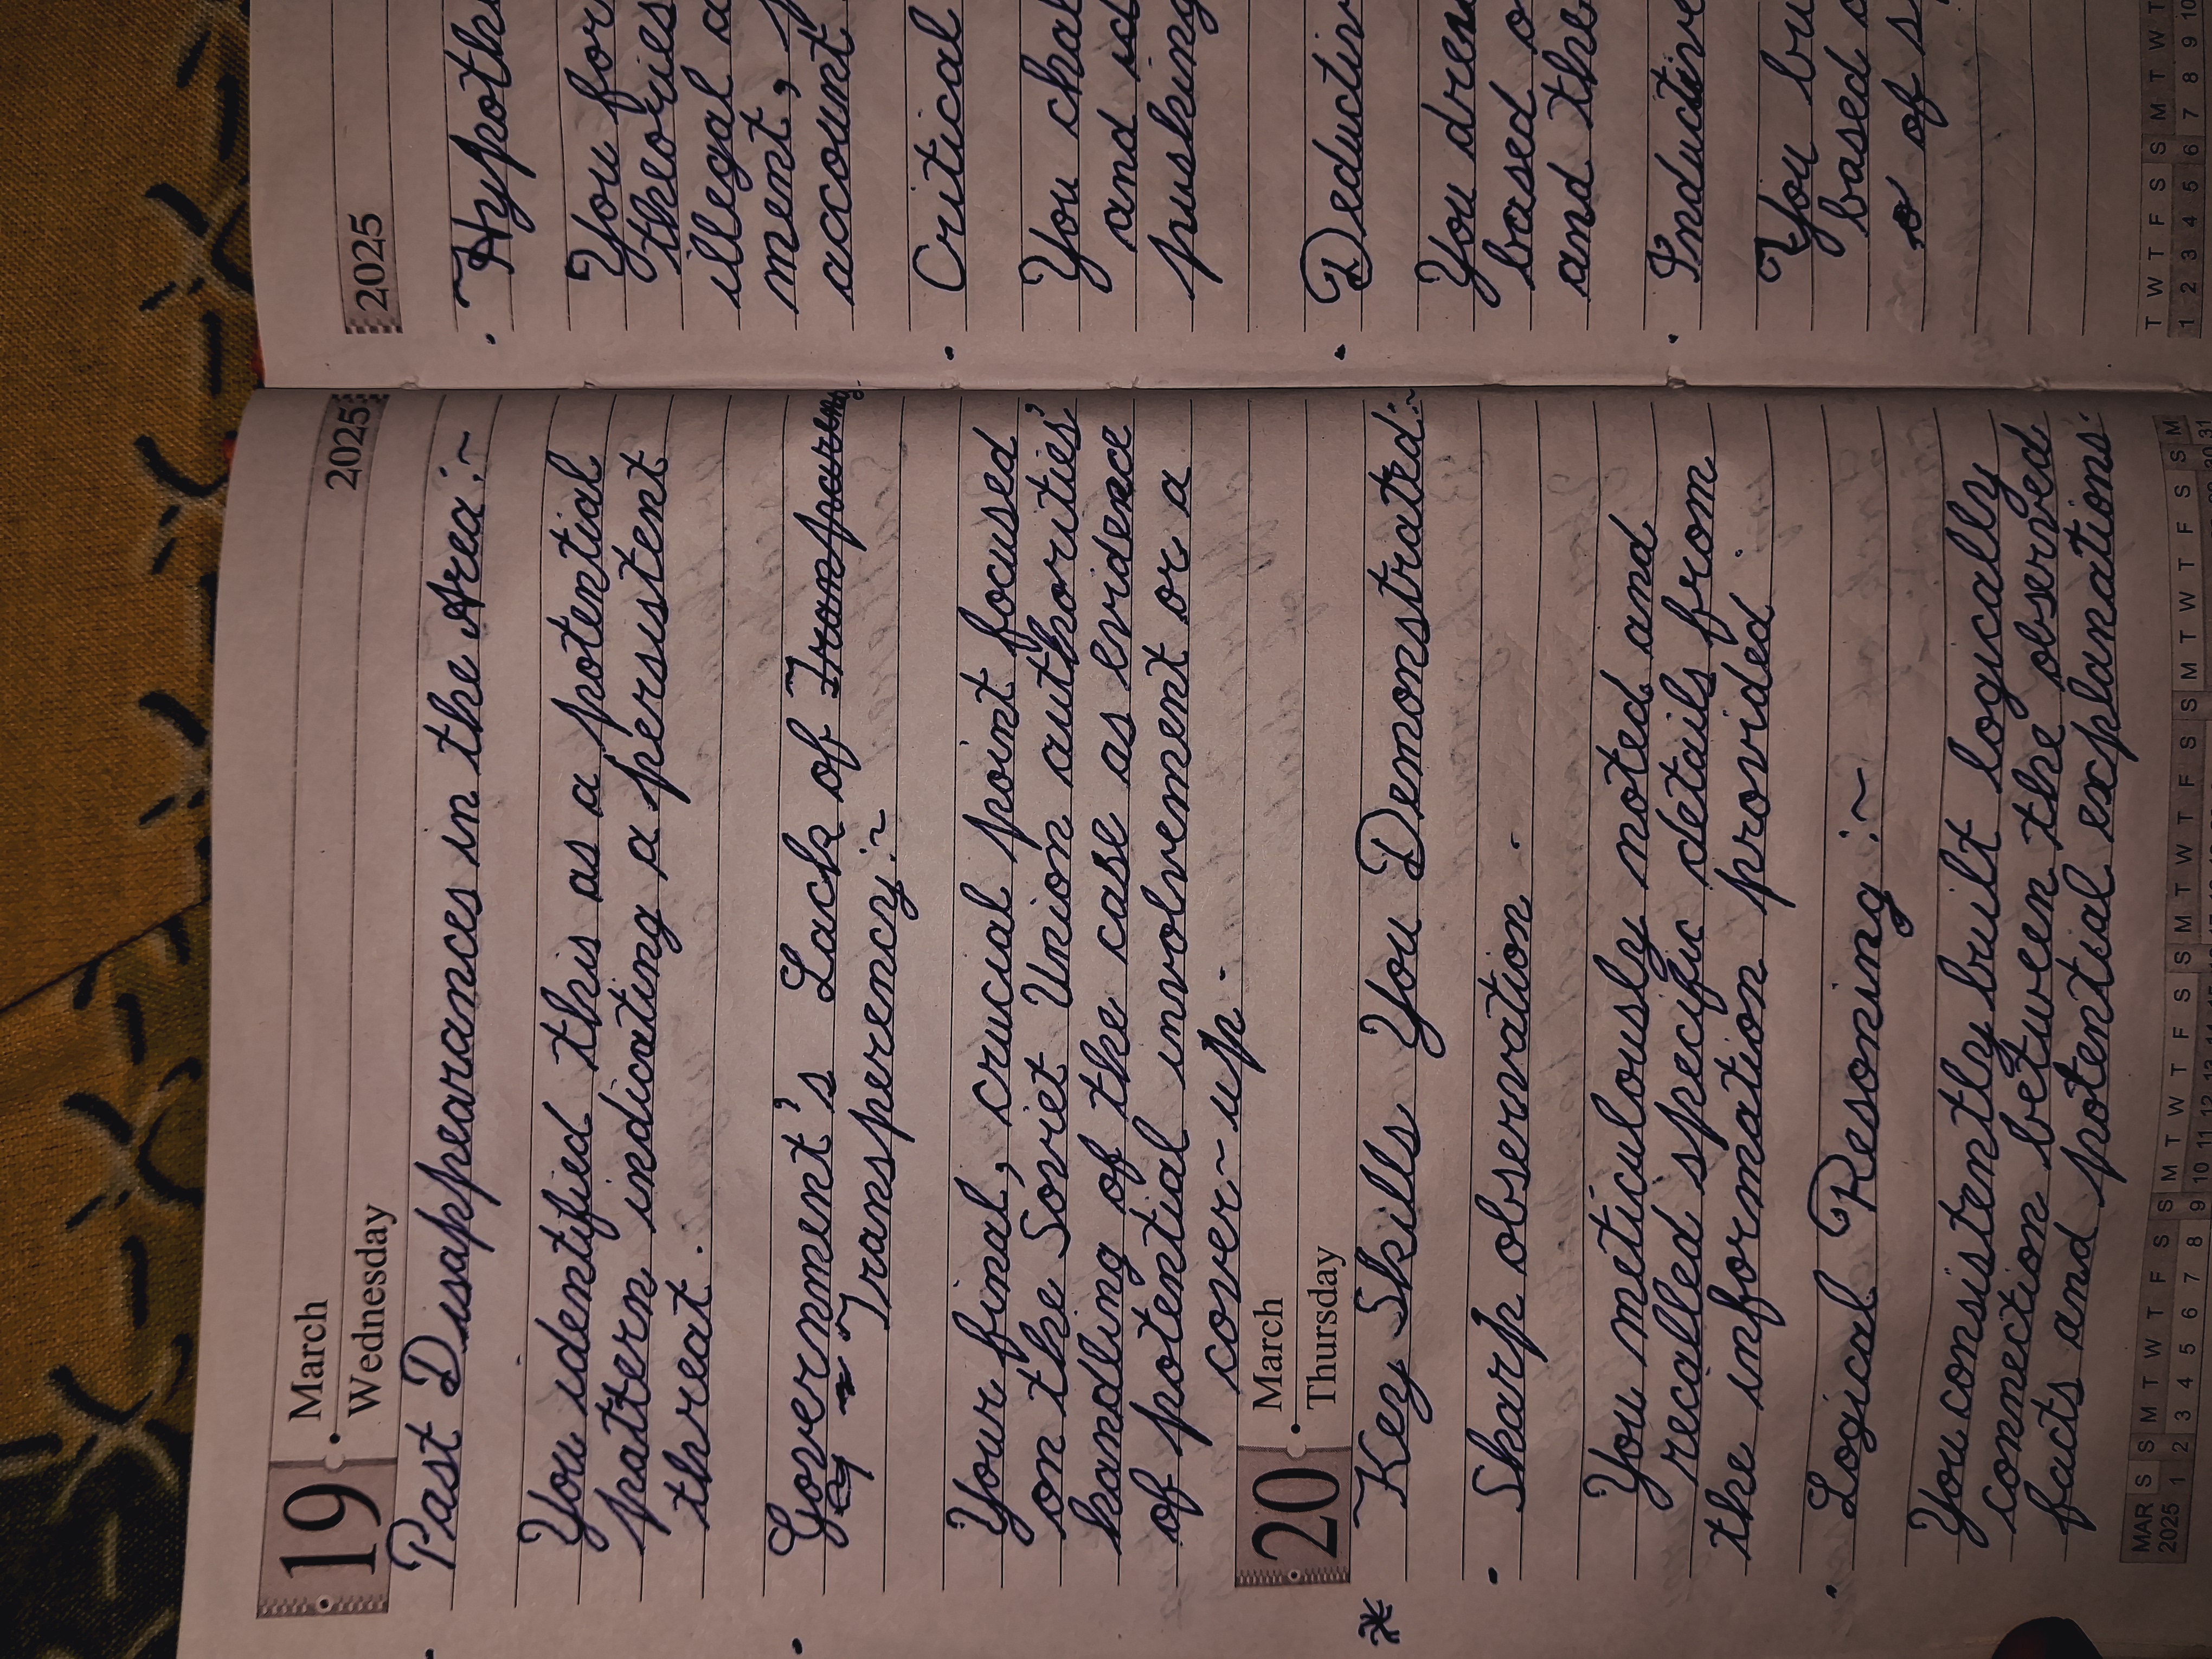 19 March
Wednesday
2025
• Past Disappearances in the Area :~
You identified this as a potential
pattern indicating a persistent
threat.
• Government's Lack of
Transperency :~
Your final, crucial point focused
on the Soviet Union authorities'
handling of the case as evidence
of potential involvement or a
cover-up.
20 March
Thursday
* Key Skills You Demonstrated :~
• Sharp observation.
You meticulously noted and
recalled specific details from
the information provided.
• Logical Resoning :~
You consistently built logically
connection between the observed
facts and potential explanations.
MAR S S M T W T F S S M T W T F S S M T W T F S S M T W T F S S M
2025 1 2 3 4 5 6 7 8 9 10 11 12 13
30 31
2025
• Hypoth
You for
theories
illegal a
ment,
account
• Critical
You chal
and id
pushing
• Deductiv
You drew
based o
and the
• Inductive
You bu
based
of
T W T F S S M T W T
1 2 3 4 5 6 7 8 9 10